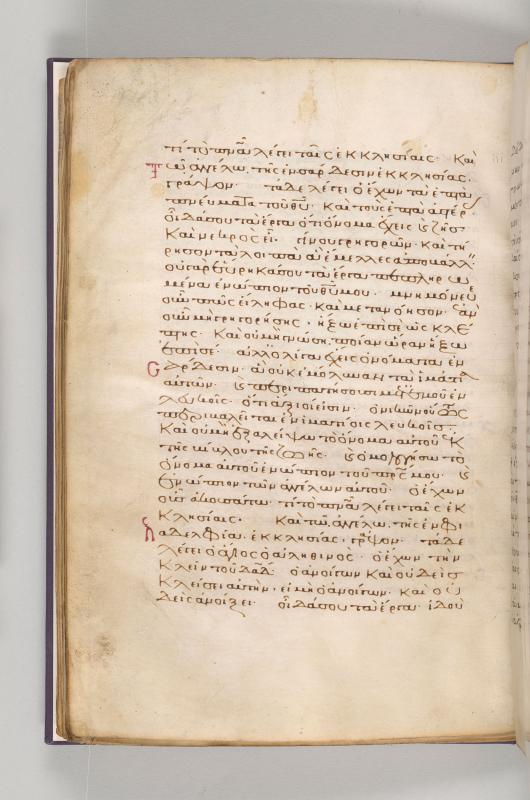 τί τὸ πνᾶ λέγει ταῖς ἐκκλησίαις. Καὶ
τῶ ἀγγέλω, τῆς ἐν σάρδεσιν ἐκκλησίας,
γράψον. τάδε λέγει ὁ ἔχων τὰ ἑπτὰ
πνεύματα τοῦ θυ. καὶ τοὺς ἑπτὰ ἀστέρ.
οἶδά σου τὰ ἔργα ὅτι ὄνομα ἔχεις ὅ ζῆς
καὶ νεκρὸς εἶ. γίνου γρηγορῶν. καὶ τή
ρησον τὰ λοιπὰ ἃ ἔμελλες ἀποβάλλ
οὐ γὰρ εὕρηκά σου τὰ ἔργα πεπληρω
μένα ἐνώπιον τοῦ θυ μου. μνημόνευε
οὖν πῶς εἴληφας. καὶ μετανόησον. ἐὰν
οὖν μὴ γρηγορήσης. ἥξω ἐπί σε ὡς κλέ
πτης. καὶ οὐ μὴ γνώση, ποίαν ὥραν ἥξω
ἐπί σε. ἀλλ ὀλίγα ἔχεις ὀνόματα ἐν
Σάρδεσιν. ἃ οὐκ ἐμόλυναν τὰ ἱμάτια
αὐτῶν. καὶ περιπατήσουσι μετ ἐμοῦ ἐν
λευκοῖς. ὅτι ἄξιοί εἰσιν. ὁ νικῶν οὕτως
περιβαλεῖται ἐν ἱματίοις λευκοῖς.
καὶ οὐ μὴ ἐξαλείψω τὸ ὄνομα αὐτοῦ ἐκ
τῆς βίβλου τῆς ζωῆς. καὶ ὁμολογήσω τὸ
ὄνομα αὐτοῦ ἐνώπιον τοῦ πρς μου. καὶ
ἐνώπιον τῶν ἀγγέλων αὐτοῦ. ὁ ἔχων
οὖς ἀκουσάτω. τί τὸ πνᾶ λέγει ταῖς ἐκ
κλησίαις. Καὶ τῶ, ἀγγέλω, τῆς ἐν φι
λαδελφία, ἐκκλησίας, γράψον. τάδε
λέγει ὁ ἅγιος ὁ ἀληθινὸς. ὁ ἔχων τὴν
κλεῖν τοῦ δᾱδ. ὁ ἀνοίγων καὶ οὐδεὶς
κλείσει αὐτὴν. εἰ μὴ ὁ ἀνοίγων. καὶ οὐ
δεὶς ἀνοίξει. οἶδά σου τὰ ἔργα. ἰδοὺ